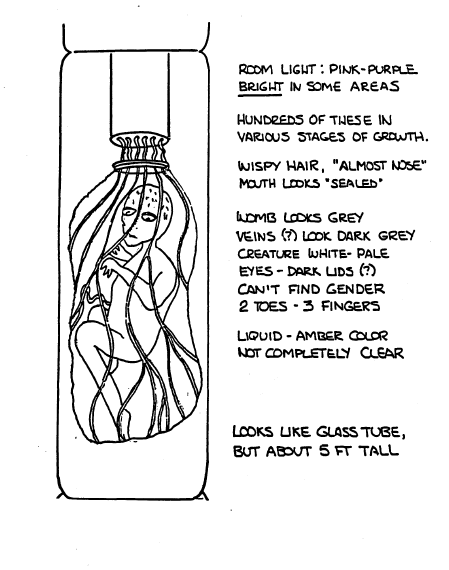 ROOM LIGHT: PINK-PURPLE
BRIGHT IN SOME AREAS
HUNDREDS OF THESE IN
VARIOUS STAGES OF GROWTH.
WISPY HAIR, "ALMOST NOSE"
MOUTH LOOKS "SEALED"
WOMB LOOKS GREY
VEINS (?) LOOK DARK GREY
CREATURE WHITE-PALE
EYES - DARK LIDS (?)
CAN'T FIND GENDER
2 TOES - 3 FINGERS
LIQUID - AMBER COLOR
NOT COMPLETELY CLEAR
LOOKS LIKE GLASS TUBE,
BUT ABOUT 5 FT TALL